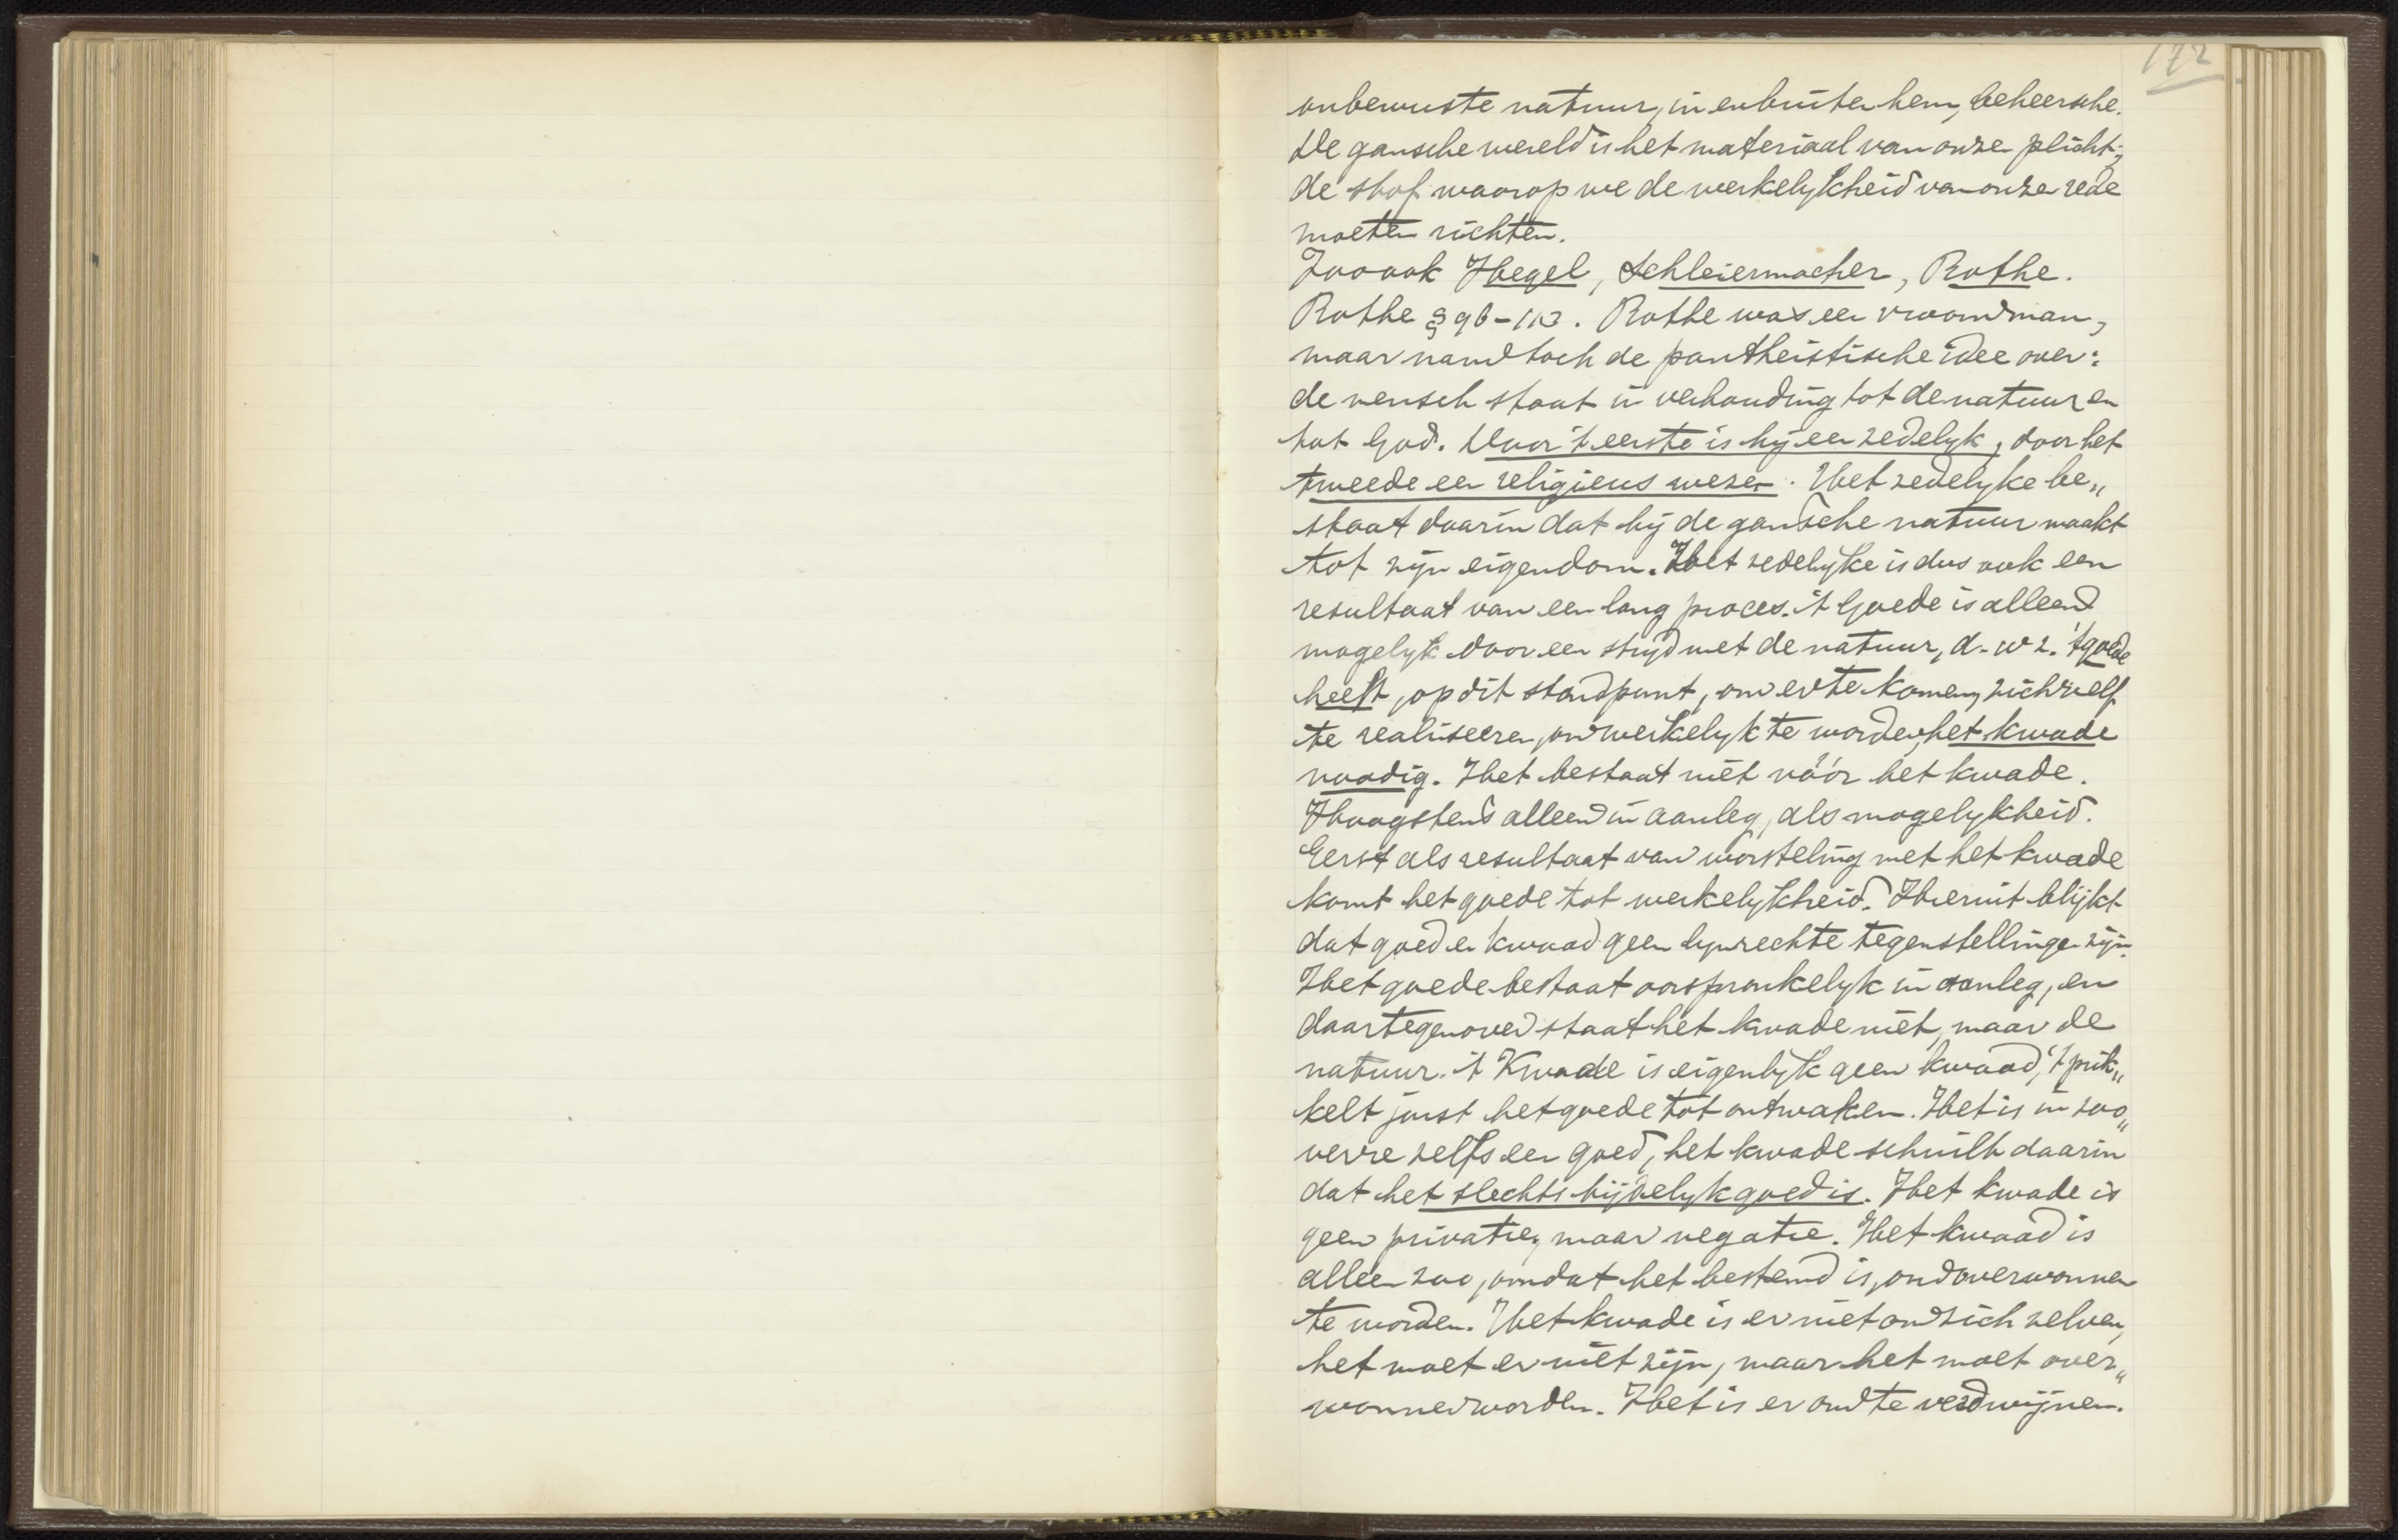 172
onbewuste natuur, in en buiten hem, beheersche.
De gansche wereld is het materiaal van onze plicht;
de stof waarop we de werkelykheid van onze rede
moeten richten.
Zoo ook Hegel, Schleiermacher, Rothe.
Rothe § 96-113. Rothe was een vroom man,
maar nam toch de pantheistische idee over:
de mensch staat in verhouding tot de natuur en
tot God. Door 't eerste is hy een zedelyk, door het
tweede een religieus wezen. Het zedelyke be„
staat daarin dat hij de gansche natuur maakt
tot zijn eigendom. Het zedelyke is dus ook een
resultaat van een lang proces. 't Goede is alleen
mogelyk door een stryd met de natuur, d.w.z. 't goede
heeft, op dit standpunt, om er te komen, zichzelf
te realiseeren, om werkelyk te worden, het kwade
noodig. Het bestaat niet vóór het kwade.
Hoogstens alleen in aanleg, als mogelykheid.
Eerst als resultaat van worsteling met het kwade
komt het goede tot werkelykheid. Hieruit blijkt
dat goed en kwaad geen lynrechte tegenstellingen zijn.
Het goede bestaat oorspronkelyk in aanleg, en
daartegenover staat het kwade niet, maar de
natuur. 't Kwade is eigenlyk geen kwaad, 't prik„
kelt juist het goede tot ontwaken. Het is in zoo„
verre zelfs een goed, het kwade schuilt daarin
dat het slechts tijdelyk goed is. Het kwade is
geen privatie, maar negatie. Het kwaad is
alleen zoo, omdat het bestemd is, om overwonnen
te worden. Het kwade is er niet om zich zelven,
het moet er niet zijn, maar het moet over„
wonnen worden. Het is er om te verdwijnen.